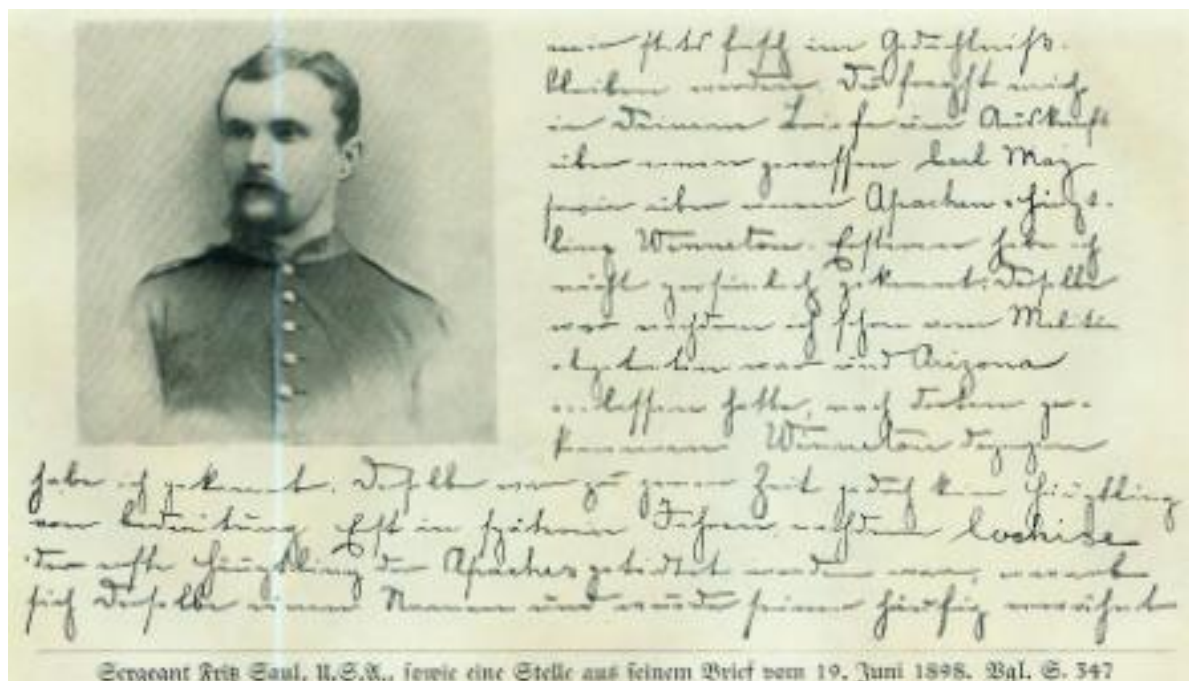 mir stets frisch im Gedächtniß
bleiben werden. Du fragst mich
in Deinem Briefe um Auskunft
über einen gewissen Carl May
sowie über einen Apachen-Häupt-
ling Winnetou. Ersteren habe ich
nicht persönlich gekannt. Derselbe
war nachdem ich schon vom Militär
abgetreten war und Arizona
verlassen hatte, nach dorten ge-
kommen Winnetou dagegen
habe ich gekannt. Derselbe war zu jener Zeit jedoch kein Häuptling
von Bedeutung Erst in späteren Jahren, nachdem Cochise
der erste Häuptling der Apaches getödtet worden war, erwarb
sich derselbe einen Namen und wurde seiner häufig erwähnt
Sergeant Fritz Saul, U.S.A., sowie eine Stelle aus seinem Brief vom 19. Juni 1898. Vgl. S. 347